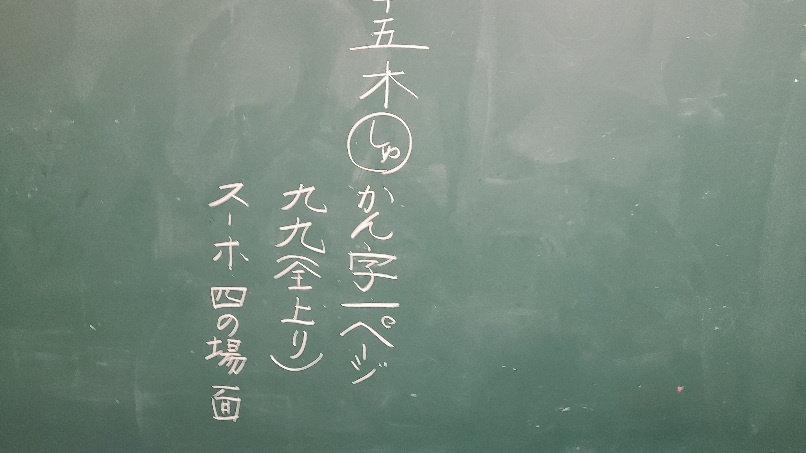 五 木 しゅ かん字一ページ
九九(全上り)
スーホ 四の場面